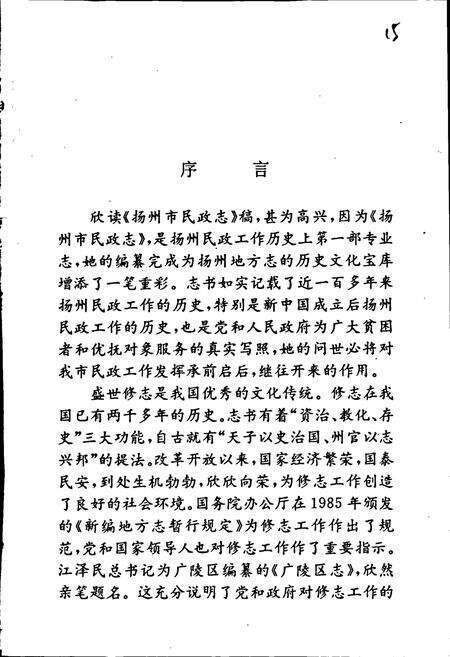 15
序言
欣读《扬州市民政志》稿，甚为高兴，因为《扬
州市民政志》，是扬州民政工作历史上第一部专业
志，她的编纂完成为扬州地方志的历史文化宝库
增添了一笔重彩。志书如实记载了近一百多年来
扬州民政工作的历史，特别是新中国成立后扬州
民政工作的历史，也是党和人民政府为广大贫困
者和优抚对象服务的真实写照，她的问世必将对
我市民政工作发挥承前启后，继往开来的作用。
盛世修志是我国优秀的文化传统。修志在我
国已有两千多年的历史。志书有着“资治、教化、存
史”三大功能，自古就有“天子以史治国、州官以志
兴邦”的提法。改革开放以来，国家经济繁荣，国泰
民安，到处生机勃勃，欣欣向荣，为修志工作创造
了良好的社会环境。国务院办公厅在1985年颁发
的《新编地方志暂行规定》为修志工作作出了规
范，党和国家领导人也对修志工作作了重要指示。
江泽民总书记为广陵区编纂的《广陵区志》，欣然
亲笔题名。这充分说明了党和政府对修志工作的